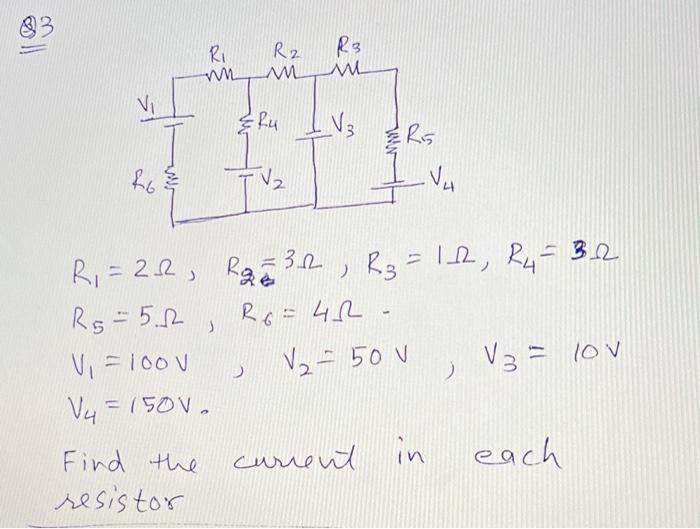 Q3
R1 R2 R3
V1 R4 V3 R5
R6 V2 V4
R1 = 2Ω, R2 = 3Ω, R3 = 1Ω, R4 = 3Ω
R5 = 5Ω, R6 = 4Ω.
V1 = 100V, V2 = 50V, V3 = 10V
V4 = 150V.
Find the current in each
resistor